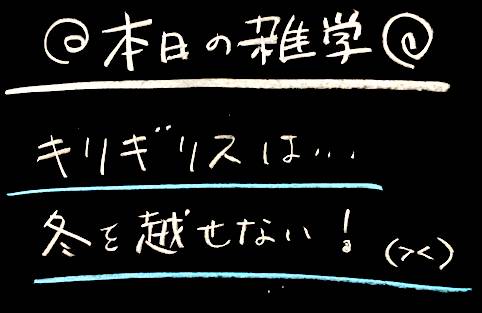 @本日の雑学@
キリギリスは…
冬を越せない！(><)